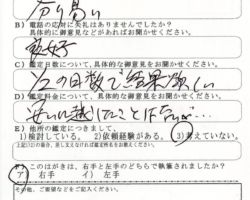 分り易い
B) 電話の応対に失礼はありませんでしたか？
具体的に御意見などがあればお聞かせください。
良好
C) 鑑定日数について、具体的な御意見をお聞かせください。
この日数で結果が欲しい
D) 鑑定料金について、具体的な御意見をお聞かせください。
安いに越したことはないが…
E) 他所の鑑定につきまして。
1)検討している。 2)依頼経験がある。 3)考えていない。
このはがきは、右手と左手のどちらで執筆されましたか？
ア) 右手 イ) 左手
その他、ご要望などをご記入ください。